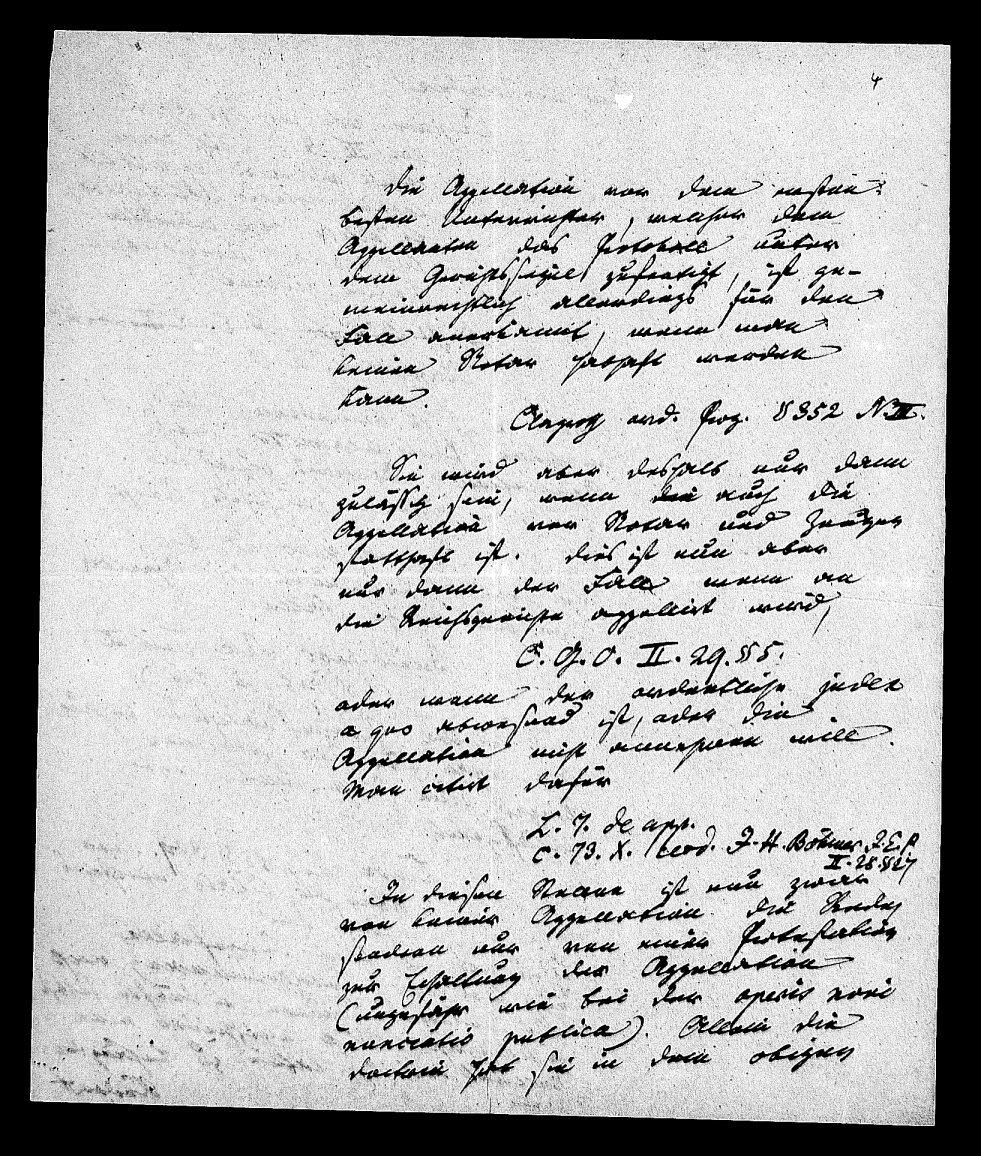 4
Die Appellation vor dem ersten
besten Unterrichter, welcher dem
Appellanten das Protokoll unter
dem Gerichtssiegel zufertigt, ist ge-
meinrechtlich allerdings für den
Fall anerkannt, wenn man
keinen Notar habhaft werden
kann.
Claproth ord. Proz. § 352 N. III.
Sie wird aber deshalb nur dann
zulässig sein, wenn auch die
Appellation vor Notar und Zeugen
statthaft ist. Dies ist nun aber
nur dann der Fall wenn an
die Reichsgerichte appellirt wird,
C. G. O. II. 29. § 5.
oder wenn der ordentliche judex
a quo abwesend ist, oder die
Appellation nicht annehmen will.
Man citirt dafür
L. 7. de app.
c. 73. X. eod. J. H. Böhmer J. E. P.
II. 28. § 27
In diesen Stellen ist nun zwar
von keiner Appellation die Rede,
sondern nur von einer Protestation
zur Erhaltung der Appellation
(ungefähr wie bei der operis novi
nunciatio publica). Allein die
doctrin hat sie in dem obigen